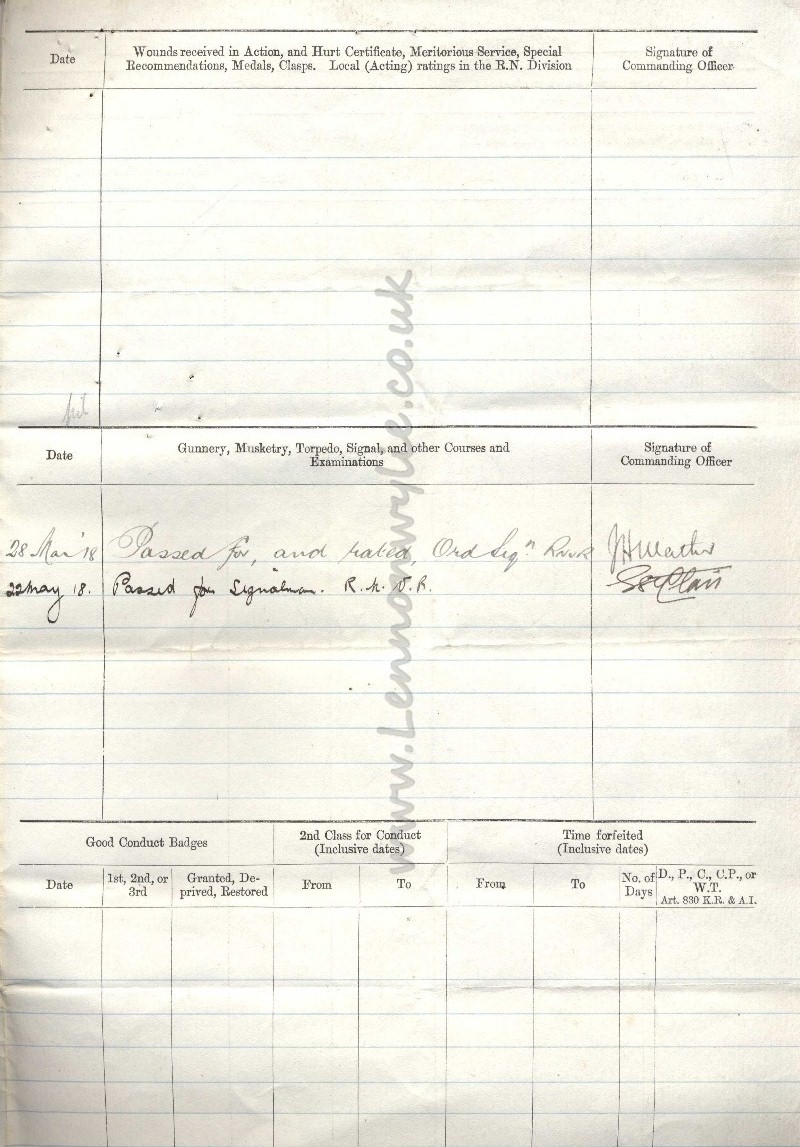 Date
Wounds received in Action, and Hurt Certificate, Meritorious Service, Special
Recommendations, Medals, Clasps. Local (Acting) ratings in the R.N. Division
Signature of
Commanding Officer
Date
Gunnery, Musketry, Torpedo, Signal, and other Courses and
Examinations
Signature of
Commanding Officer
28 Mar '18 Passed for, and rated, Ord Sigⁿ
22 May 18. Passed for Signalman. R.N.V.R.
Good Conduct Badges
2nd Class for Conduct
(Inclusive dates)
Time forfeited
(Inclusive dates)
Date
1st, 2nd, or
3rd
Granted, De-
prived, Restored
From
To
From
To
No. of
Days
D., P., C., C.P., or
W.T.
Art. 830 K.R. & A.I.
www.Lennonwylie.co.uk